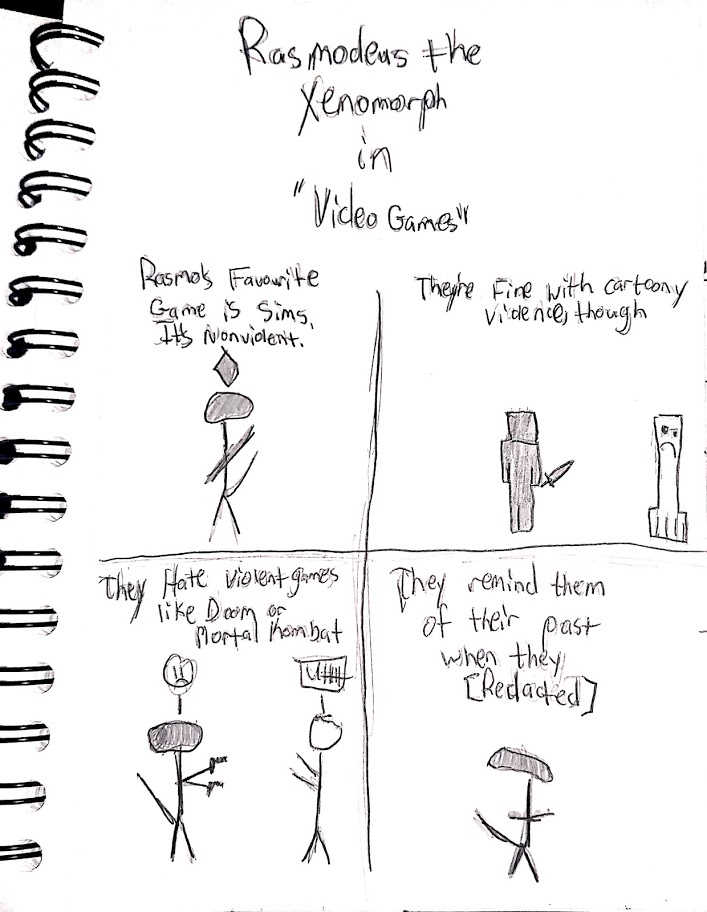 Rasmodeus the
Xenomorph
in
"Video Games"
Rasmo's Favourite
Game is Sims,
It's Nonviolent.
They're Fine with cartoony
violence, though
They Hate violent games
like Doom or
Mortal Kombat
They remind them
of their past
when they
[Redacted]